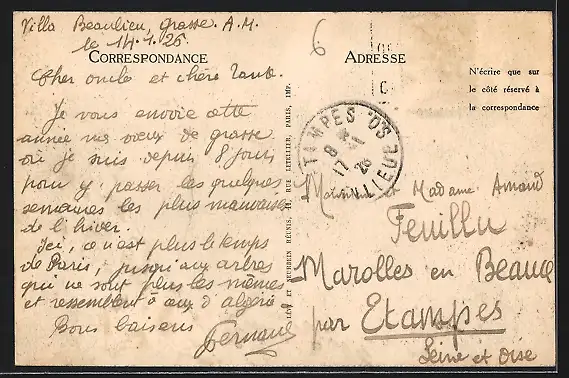 Villa Beaulieu, Grasse. A.M.
le 14.1.26.
6
CORRESPONDANCE
ADRESSE
N'écrire que sur
le côté réservé à
la correspondance
Cher oncle et chère Tante.
Je vous envoie cette
année mes vœux de grasse
où je suis depuis 8 jours
pour y passer les quelques
semaines les plus mauvaises
de l'hiver.
Ici, ce n'est plus le temps
de Paris, jusqu'aux arbres
qui ne sont plus les mêmes
et ressemblent à ceux d'algérie
Bons baisers
Fernand
LÉVY ET NEURDEIN RÉUNIS, 44, RUE LETELLIER, PARIS, IMP.
ETAMPES
17 -1 26
Monsieur et Madame Armand
Feuillu
Marolles en Beauce
par Etampes
Seine et Oise